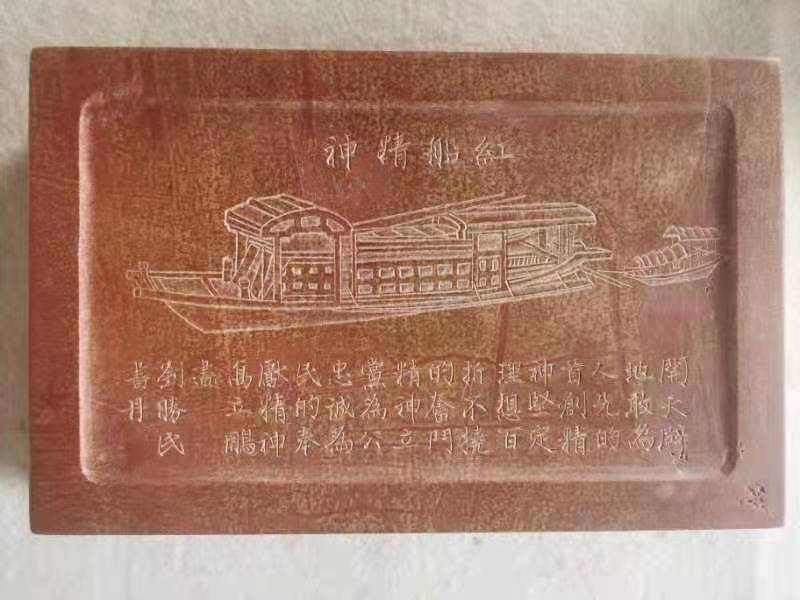 紅船精神
開天闢
地敢為
人先的
首創精
神堅定
理想百
折不撓
的奮鬥
精神立
黨為公
忠誠為
民的奉
獻精神
馬立鵬
畫
劉勝民
書丹